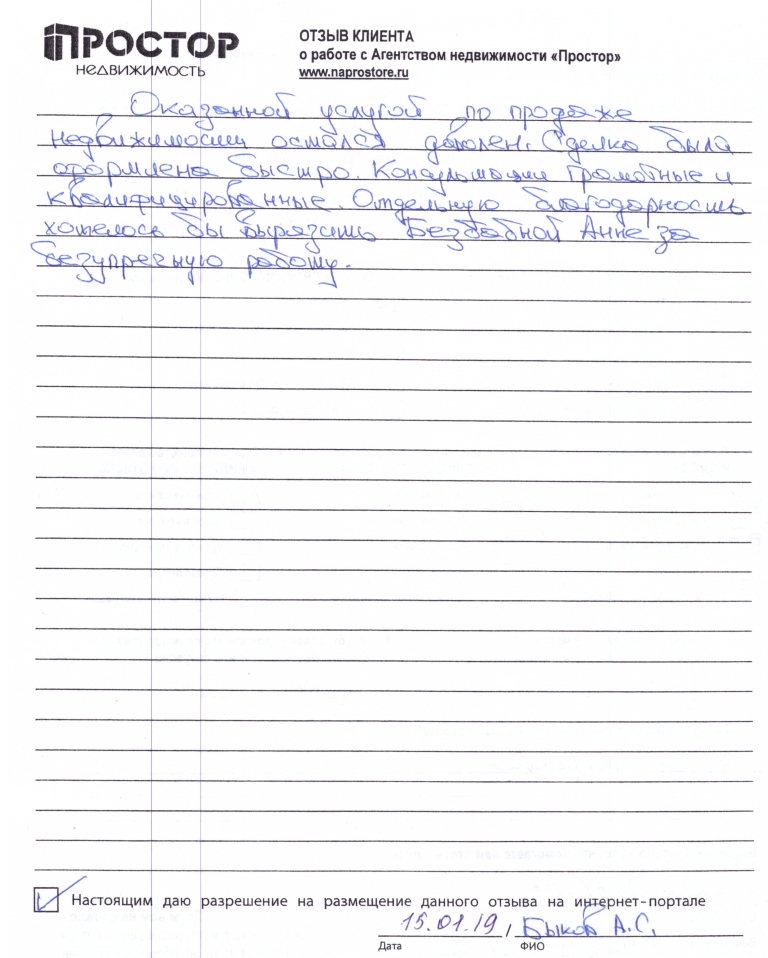 ПРОСТОР
НЕДВИЖИМОСТЬ
ОТЗЫВ КЛИЕНТА
о работе с Агентством недвижимости «Простор»
www.naprostore.ru
Оказанной услугой по продаже
недвижимости остался доволен. Сделка была
оформлена быстро. Консультации грамотные и
квалифицированные. Отдельную благодарность
хотелось бы выразить Безбабной Анне за
безупречную работу.
Настоящим даю разрешение на размещение данного отзыва на интернет-портале
15.01.19 / Быков А.С.
Дата ФИО